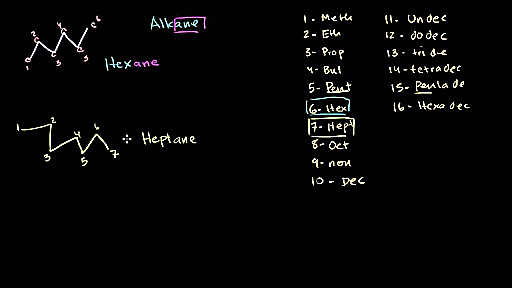 Alkane
C C C C C C
1 2 3 4 5 6
Hexane
1 2 3 4 5 6 7
Heptane
1 - Meth
2 - Eth
3 - Prop
4 - But
5 - Pent
6 - Hex
7 - Hept
8 - Oct
9 - non
10 - Dec
11 - Undec
12 - dodec
13 - tridec
14 - tetradec
15 - Pentadec
16 - Hexadec